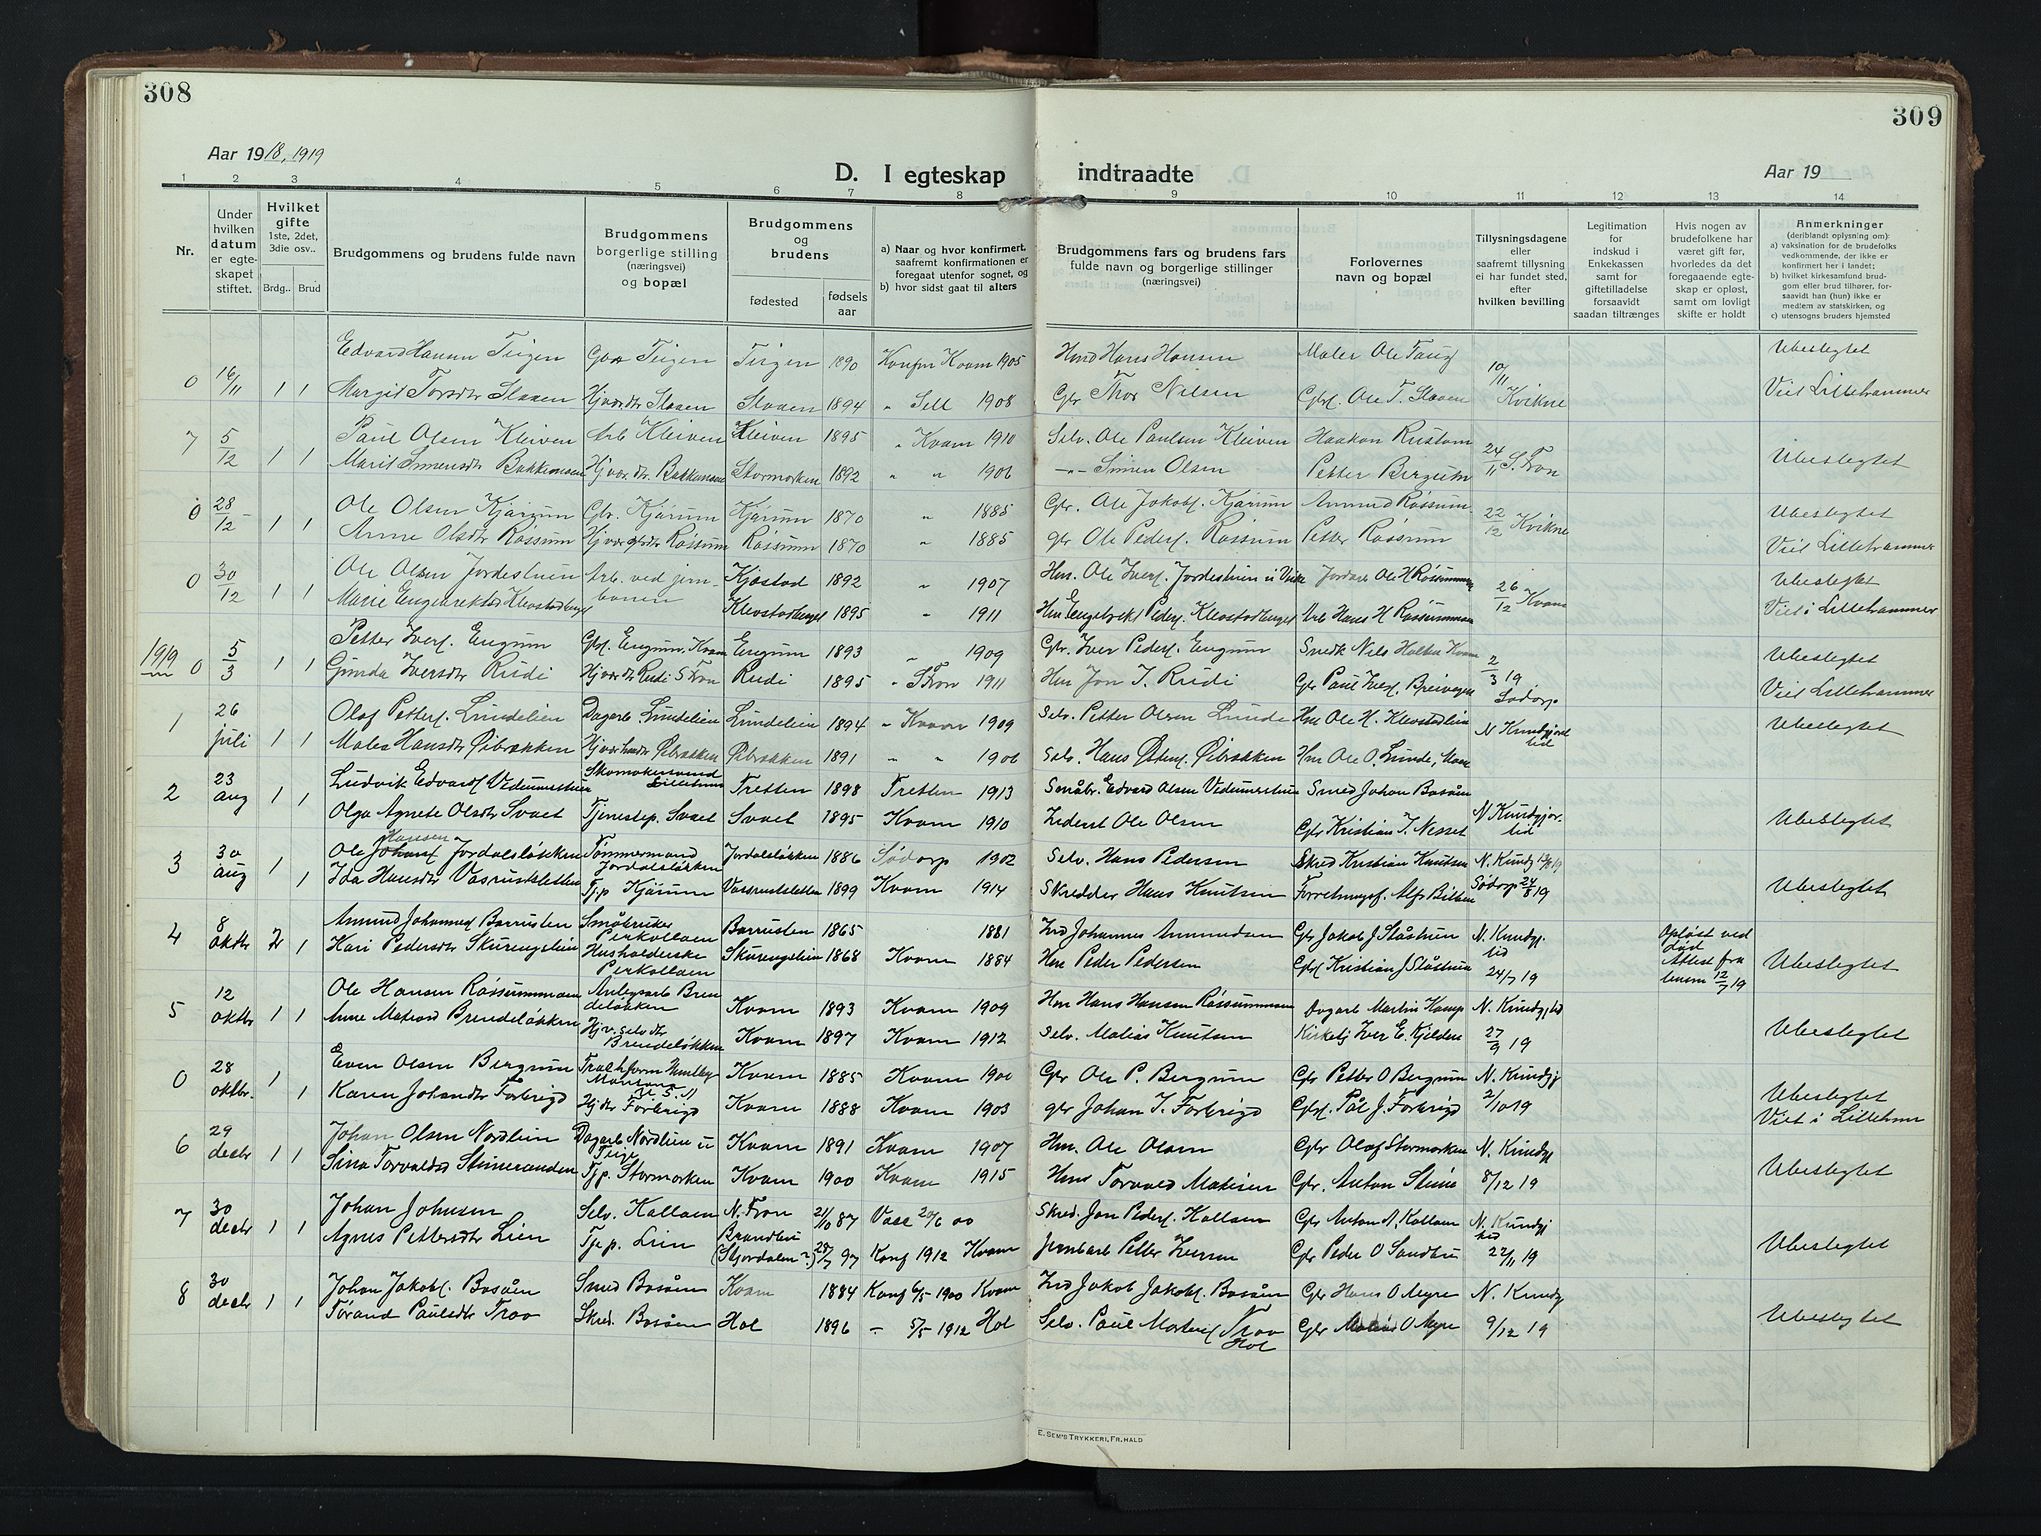 308
309
Aar 1918, 1919
Aar 19
D. I egteskap indtraadte
1 2 3 4 5 6 7 8 9 10 11 12 13 14
Nr.
Under hvilken datum er egteskapet stiftet.
Hvilket gifte 1ste, 2det, 3die osv..
Brdg..
Brud
Brudgommens og brudens fulde navn
Brudgommens borgerlige stilling (næringsvei) og bopæl
Brudgommens og brudens
fødested
fødsels aar
a) Naar og hvor konfirmert, saafremt konfirmationen er foregaat utenfor sognet, og
b) hvor sidst gaat til alters
Brudgommens fars og brudens fars fulde navn og borgerlige stillinger (næringsvei)
Forlovernes navn og bopæl
Tillysningsdagene eller saafremt tillysning ei har fundet sted, efter hvilken bevilling
Legitimation for indskud i Enkekassen samt for giftetilladelse forsaavidt saadan tiltrænges
Hvis nogen av brudefolkene har været gift før, hvorledes da det foregaaende egteskap er opløst, samt om lovligt skifte er holdt
Anmerkninger (deriblandt oplysning om):
a) vaksination for de brudefolks vedkommende, der ikke er konfirmert her i landet;
b) hvilket kirkesamfund brudgom eller brud tilhører, forsaavidt han (hun) ikke er medlem av statskirken, og
c) utensogns bruders hjemsted
Edvard Hansen Teigen Gbr Teigen Teigen 1890 Konfir Kvam 1905 Hmd Hans Hansen Maler Ole Taug 10/11 Ubeslegtet
0 16/11 1 1 Margit Torsdtr Slaaen Hjv.dtr Slaaen Slaaen 1894 " Sell 1908 Gbr Thor Nilsen Gbrs. Ole T. Slaaen Kvikne Viet Lillehammer
7 5/12 1 1 Paul Olsen Kleiven Arb Kleiven Kleiven 1895 " Kvam 1910 Selv. Ole Paulsen Kleiven Haakon Rustom 24/11 S. Fron Ubeslegtet
Marit Simensdtr Bakkemoen Hjv.dtr Bakkemoen Stormorken 1892 " " 1906 -"- Simen Olsen Petter Bergum
0 28/12 1 1 Ole Olsen Kjørum Gbr. Kjørum Kjørum 1870 " 1885 Gbr. Ole Jakobs. Kjørum Amund Røssum 22/12 Kvikne Ubeslegtet
Anne Olsdtr Røssum Røssum 1870 " 1885 gbr Ole Peders. Røssum Petter Røssum Viet Lillehammer
0 30/12 1 1 Ole Olsen Jordestuen Arb. ved jernbanen Kjøstad 1892 " 1907 Hm. Ole Ivers. Jordestuen 26/12 Kvam Ubeslegtet
Marie Engebrektsd Klevstadberget Klevstadberget 1895 " 1911 Hm Engebrekt Peders. Klevstadberget Arb Hans H Røssummoen Viet i Lillehammer
1919 0 5/3 1 1 Petter Ivers. Engum Gbs. Engum, Kvam Engum 1893 " 1909 Gbr. Iver Peders. Engum Snedk Nils Holten Kvam 2/3 19 Ubeslegtet
Gunda Iversdtr Rudi Hjv.dtr Rudi S Fron Rudi 1895 " S Fron 1911 Hm Jon I. Rudi Gbr Paul Ivers. Breivegen Sødorp Viet Lillehammer
1 26 juli 1 1 Olaf Petters. Lundelien Dagarb Lundelien Lundelien 1894 " Kvam 1909 Selv. Petter Olsen Lunde Hm Ole H. Klevstadlien N Kundgjort tid Ubeslegtet
Malea Hansdtr Øibrækken Øibrækken Øibrækken 1891 " " 1906 Selv. Hans Østens. Øibrækken Hm Ole O. Lunde, Moen
2 23 aug 1 1 Ludvik Edvards Vedumsstuen Skomakersvend Lillehammer Tretten 1898 Tretten 1913 Småbr. Edvard Olsen Vedumestuen Smed Johan Bosåen
Olga Agnete Olsdtr Svaet Tjenestep. Svaet Svaet 1895 Kvam 1910 Federst Ole Olsen Gbr Kristian T. Nesset N Kundgjor. tid Ubeslegtet
3 30 aug 1 1 Ole Hansen Jordalsløkken Tømmermand Jordalsløkken Jordalsløkken 1886 Sødorp 1902 Selv. Hans Pedersen Skred Kristian Knutsen N. Kundg
Ida Hansdtr Vasrustsletten Tj.p Kjørum Vasrustsletten 1899 Kvam 1914 Skredder Hans Knutsen Forretningsf. Alf Bilben Sødorp 24/8 19 Ubeslegtet
4 8 oktbr 2 1 Amund Johannes Borrusten Småbruker Perkollaen Borrusten 1865 1881 Ind Johannes Ammundsen Gbr Jakob J Slåstuen N. Kundgj. tid Opløst ved død Attest fra lensm 12/7 19
Kari Pedersdtr Skurengslein Husholderske Perkollaen Skurengslein 1868 Kvam 1884 Hm Peder Pedersen Gbs. Kristian J Slåstuen 24/7 19 Ubeslegtet
5 12 oktbr 1 1 Ole Hansen Røssummoen Anlegsarb Brendeløkken Kvam 1893 Kvam 1909 Hm Hans Hansen Røssummoen Dagarb Martin Kamp N. Kundgj. tid
Anne Matiasd Brendeløkken Hjv. selv dtr Brendeløkken Kvam 1897 Kvam 1912 Selv. Matias Knutsen Kirketj Iver E. Kjelden 27/9 19 Ubeslegtet
0 28 oktbr. 1 1 Even Olsen Bergum Kvam 1885 Kvam 1900 Gbr Ole P. Bergum Gbr Petter O Bergum N. Kundgj Ubeslegtet
Karen Johandtr Forbrigd Hj.dtr Forbrigd Kvam 1888 Kvam 1903 gbr Johan I. Forbrigd Gbs. Pål J. Forbrigd 2/10 19 Viet i Lilleham
6 29 decbr 1 1 Johan Olsen Nordlien Dagarb Nordlien Kvam 1891 Kvam 1907 Hm. Ole Olsen Gbr Olaf Stormorken N. Kundgj
Sina Torvaldsd Tj.p. Stormorken Kvam 1900 Kvam 1915 Hm Torvald Matisen Gbr. Anton Stime 8/12 19 Ubeslegtet
7 30 decbr 1 1 Johan Johnsen Selv. Kollaen N. Fron 21/10 87 Vase 20/6 00 Skred. Jon Peders. Kollaen Gbr Anton A. Kollaen N. Kundgj tid
Agnes Pettersdtr Lien Tje p. Lien Brandbu (Stjordalen?) 97 Konf 1912 Kvam Jernbarb Petter Iversen Gbr Peder O Sandbu 22/11 19 Ubeslegtet
8 30 decbr 1 1 Johan Jakobs. Bosåen Smed Bosåen Kvam 1884 Konf 6/5 1900 Kvam Ind Jakob Jakobs. Bosåen Gbr Hans O Myre N. Kundg
Tørand Paulsdtr Trøo Skred. Bosåen Hol 1896 - 5/5 1912 Hol Selv. Paul Mortens Trøo Hol Gbr O Myre 9/12 19 Ubeslegtet
E. SEM'S TRYKKERI, FR.HALD